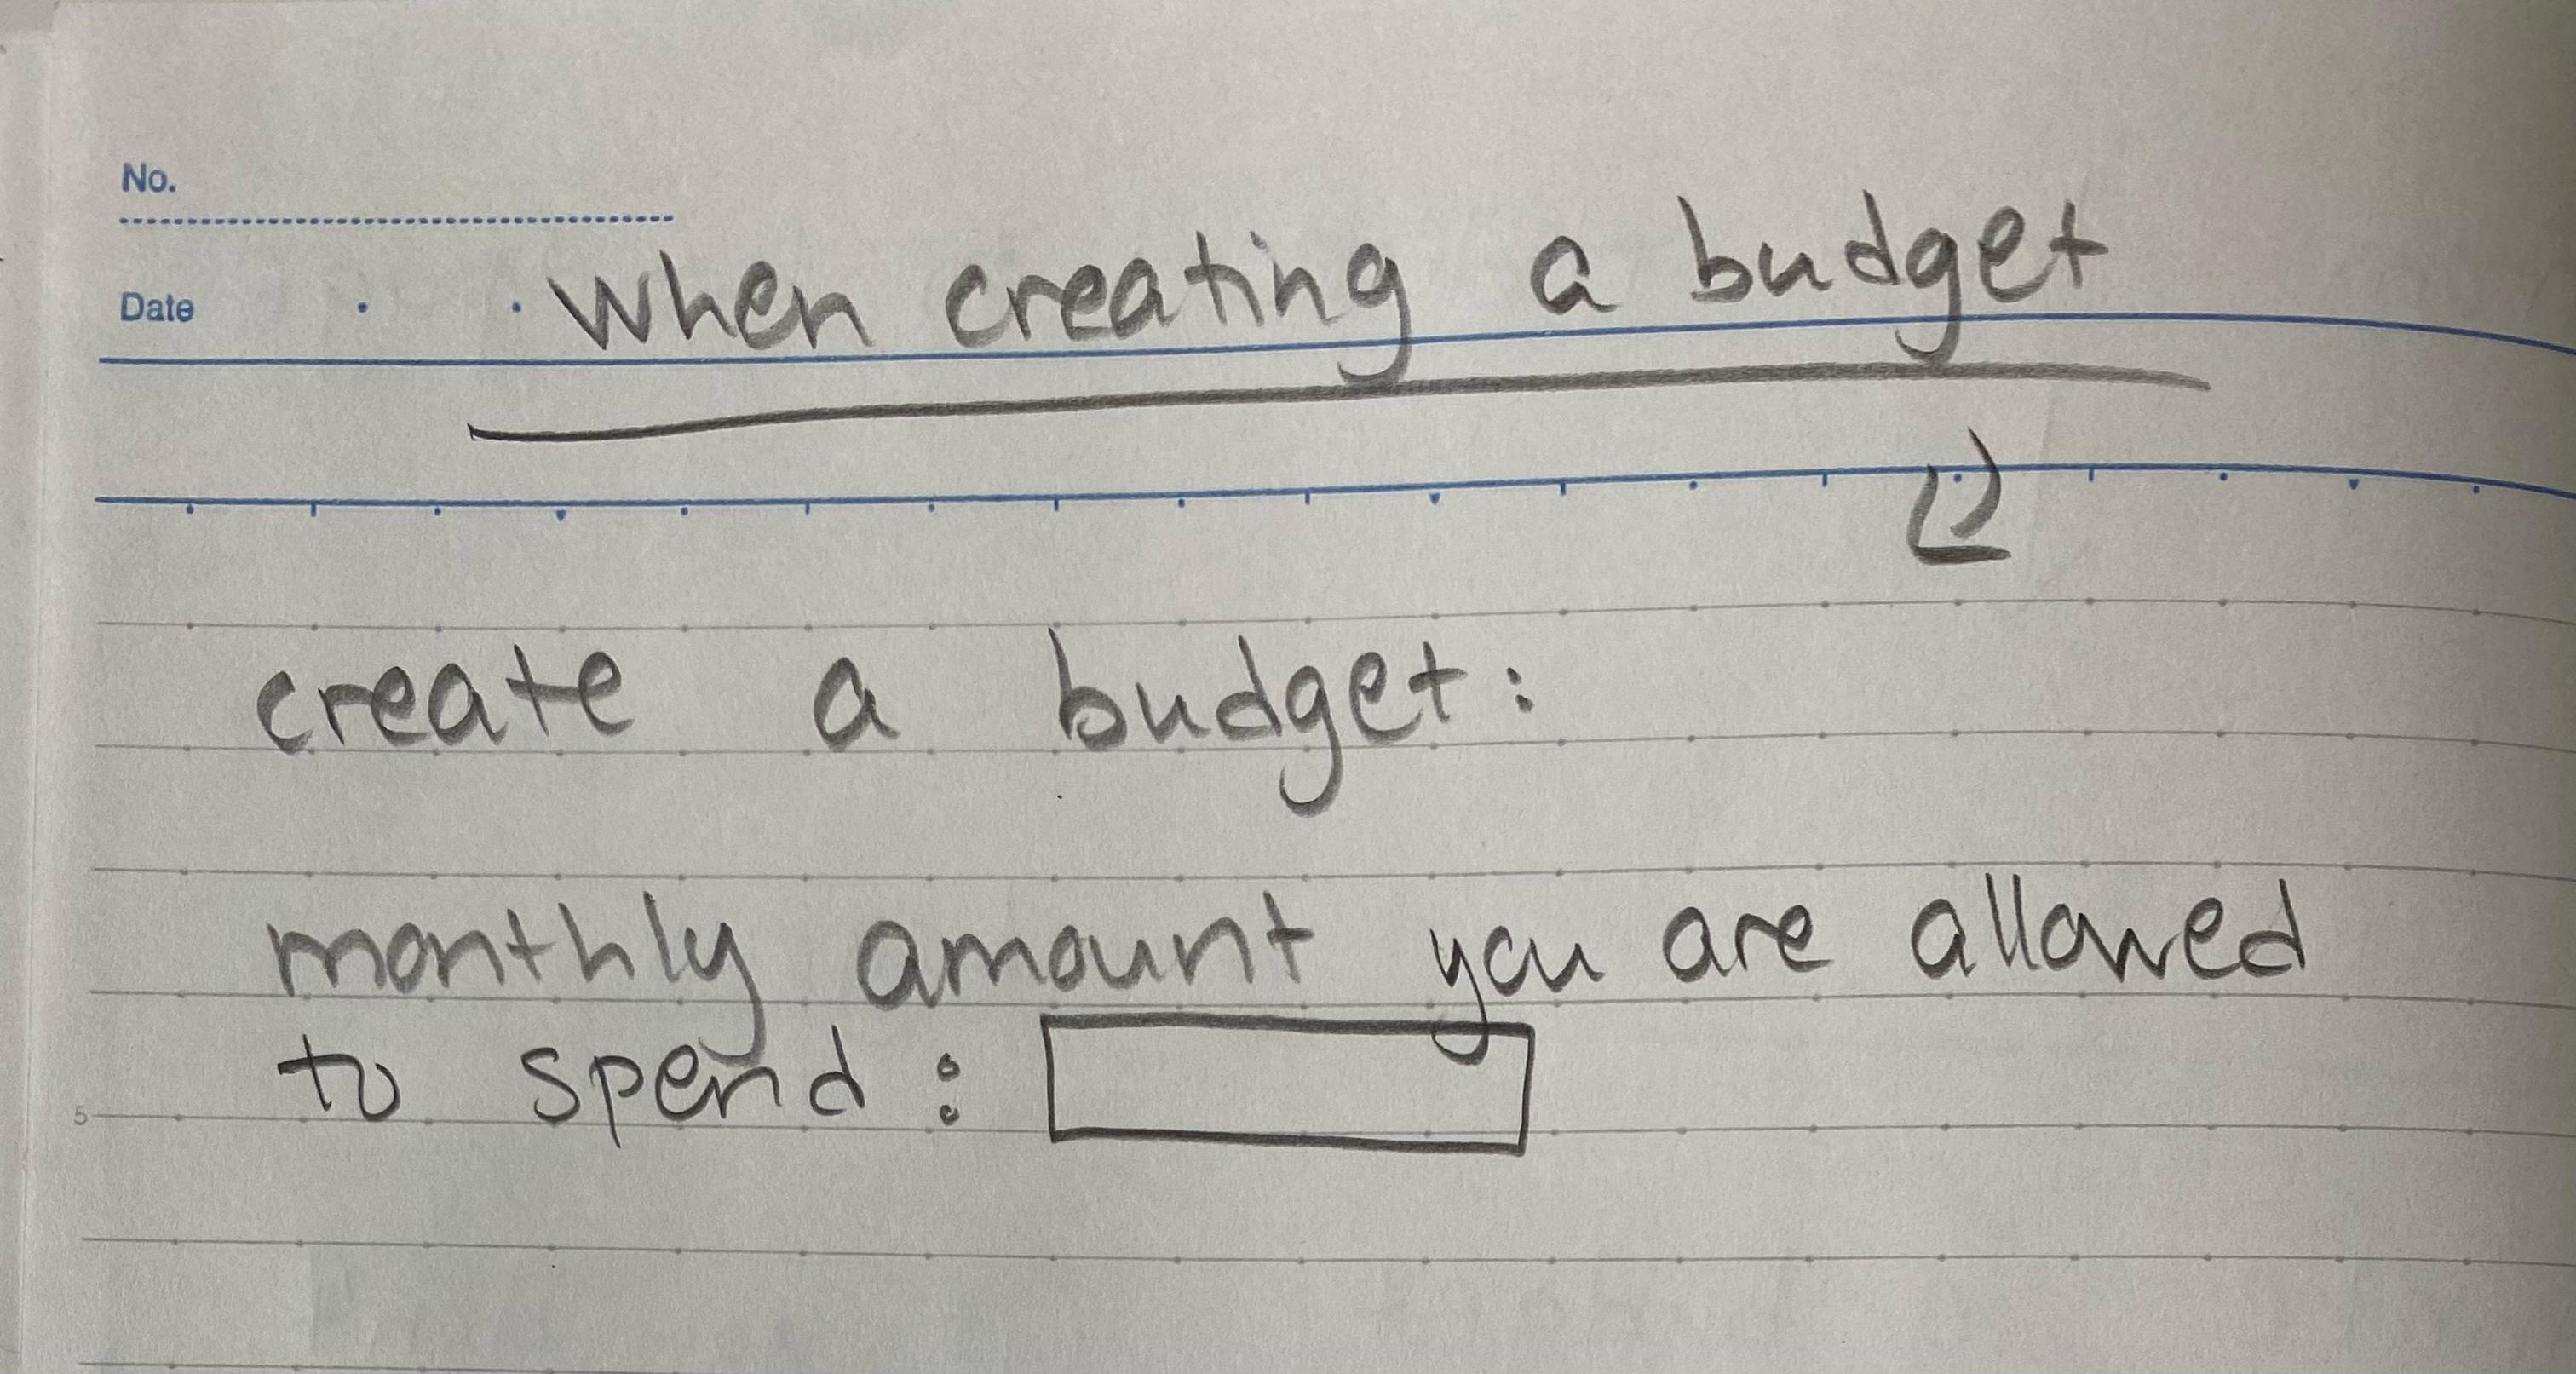 No.
Date
when creating a budget
create a budget:
monthly amount you are allowed
to spend:
5